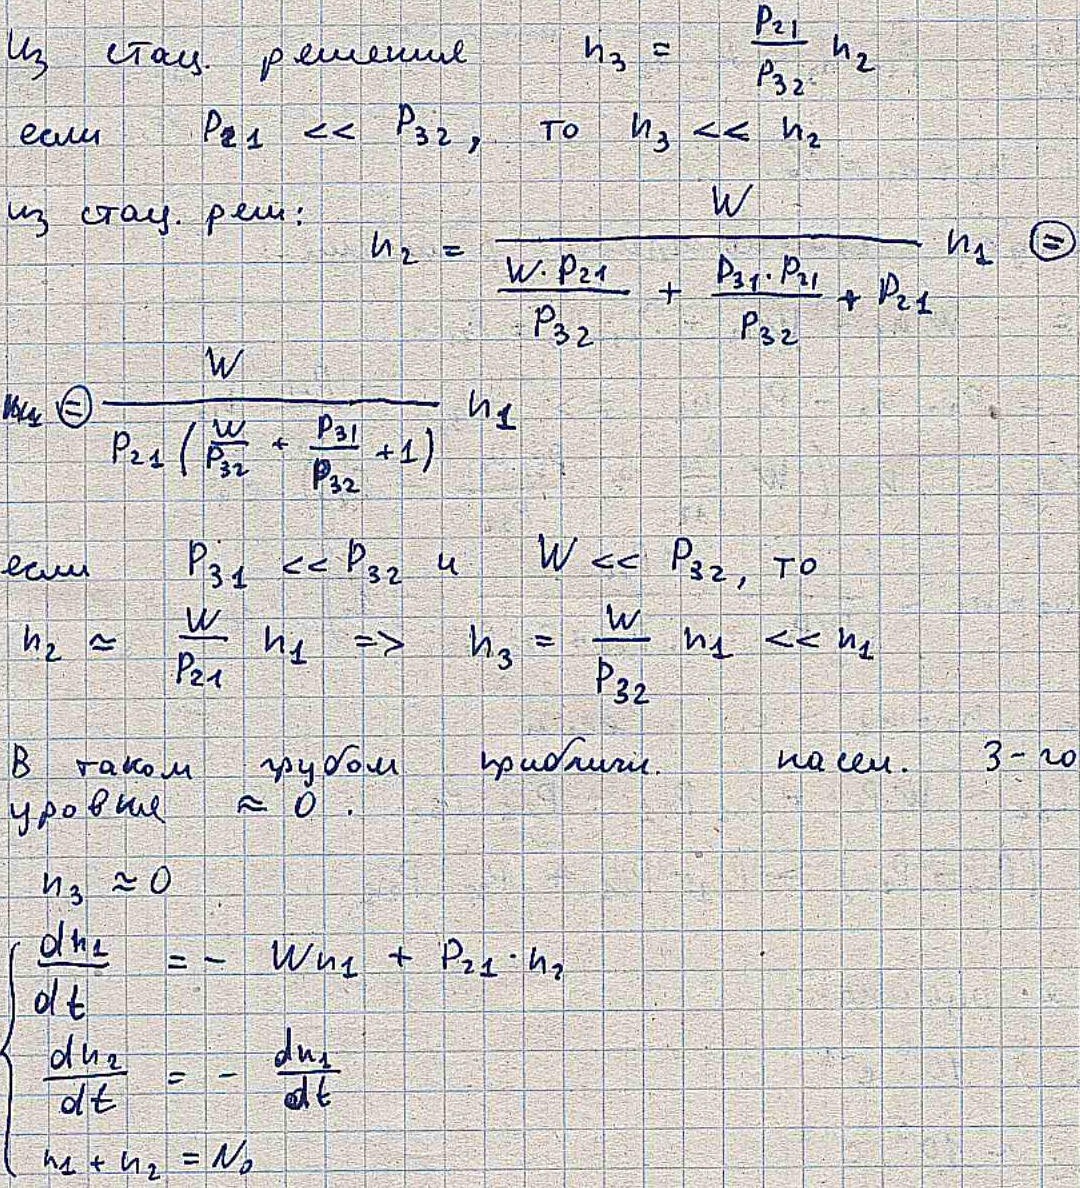 Из стац. решения n₃ = P₂₁/P₃₂ n₂
если P₂₁ << P₃₂, то n₃ << n₂
из стац. реш:
n₂ = W / (W·P₂₁/P₃₂ + P₃₁·P₂₁/P₃₂ + P₂₁) n₁ ⊜
⊜ W / (P₂₁ (W/P₃₂ + P₃₁/P₃₂ + 1)) n₁
если P₃₁ << P₃₂ и W << P₃₂, то
n₂ ≈ W/P₂₁ n₁ => n₃ = W/P₃₂ n₁ << n₁
В таком грубом приближ. насел. 3-го
уровня ≈ 0.
n₃ ≈ 0
dn₁/dt = - Wn₁ + P₂₁·n₂
dn₂/dt = - dn₁/dt
n₁ + n₂ = N₀